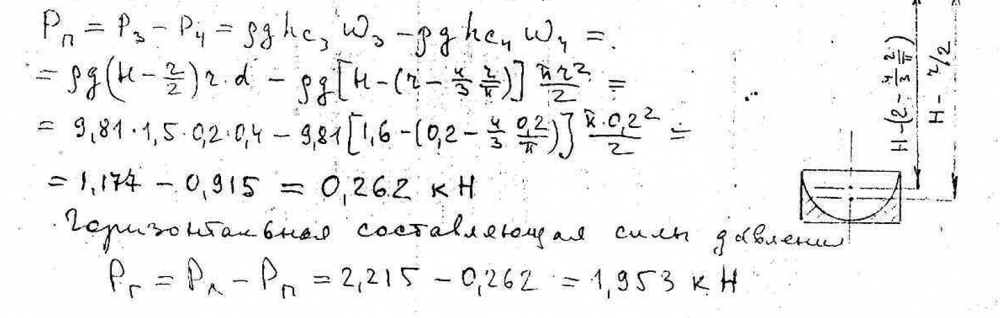 Pп = P₃ − P₄ = ρg hc₃ W₃ − ρg hc₄ W₄ =
= ρg(H − r/2) r·d − ρg[H − (r − 4/3 r/π)] πr²/2 =
= 9,81·1,5·0,2·0,4 − 9,81[1,6 − (0,2 − 4/3 0,2/π)] π·0,2²/2 =
= 1,177 − 0,915 = 0,262 кН
Горизонтальная составляющая силы давления
Pг = Pл − Pп = 2,215 − 0,262 = 1,953 кН
H − (r − 4/3 r/π)
H − r/2